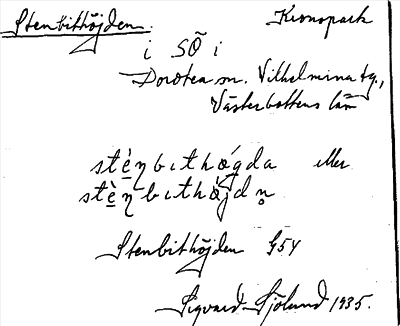 Stenbithöjden. Kronopark
i SÖ i
Dorotea sn. Vilhelmina tg.,
Västerbottens län
stè̱ŋbɩthǿgda eller
stè̱ŋbɩthǿjdn̥
Stenbithöjden G5Y
Sigvard Sjölund 1935.